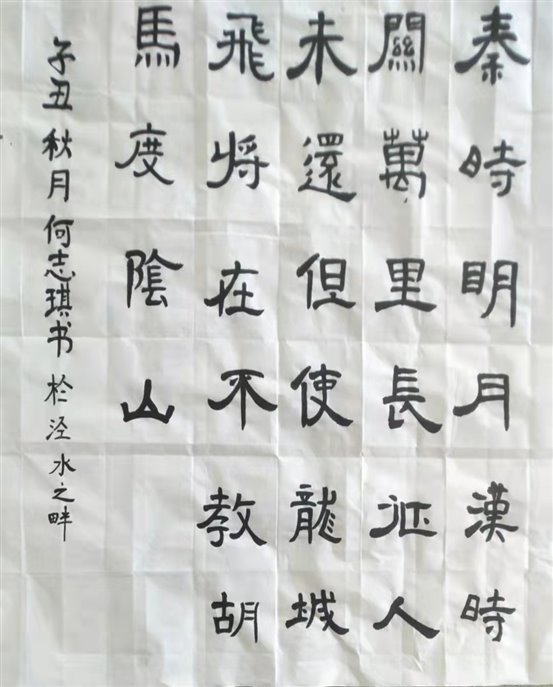 秦時明月漢時
關萬里長征人
未還但使龍城
飛将在不教胡
馬度陰山
子丑秋月何志琪书於泾水之畔